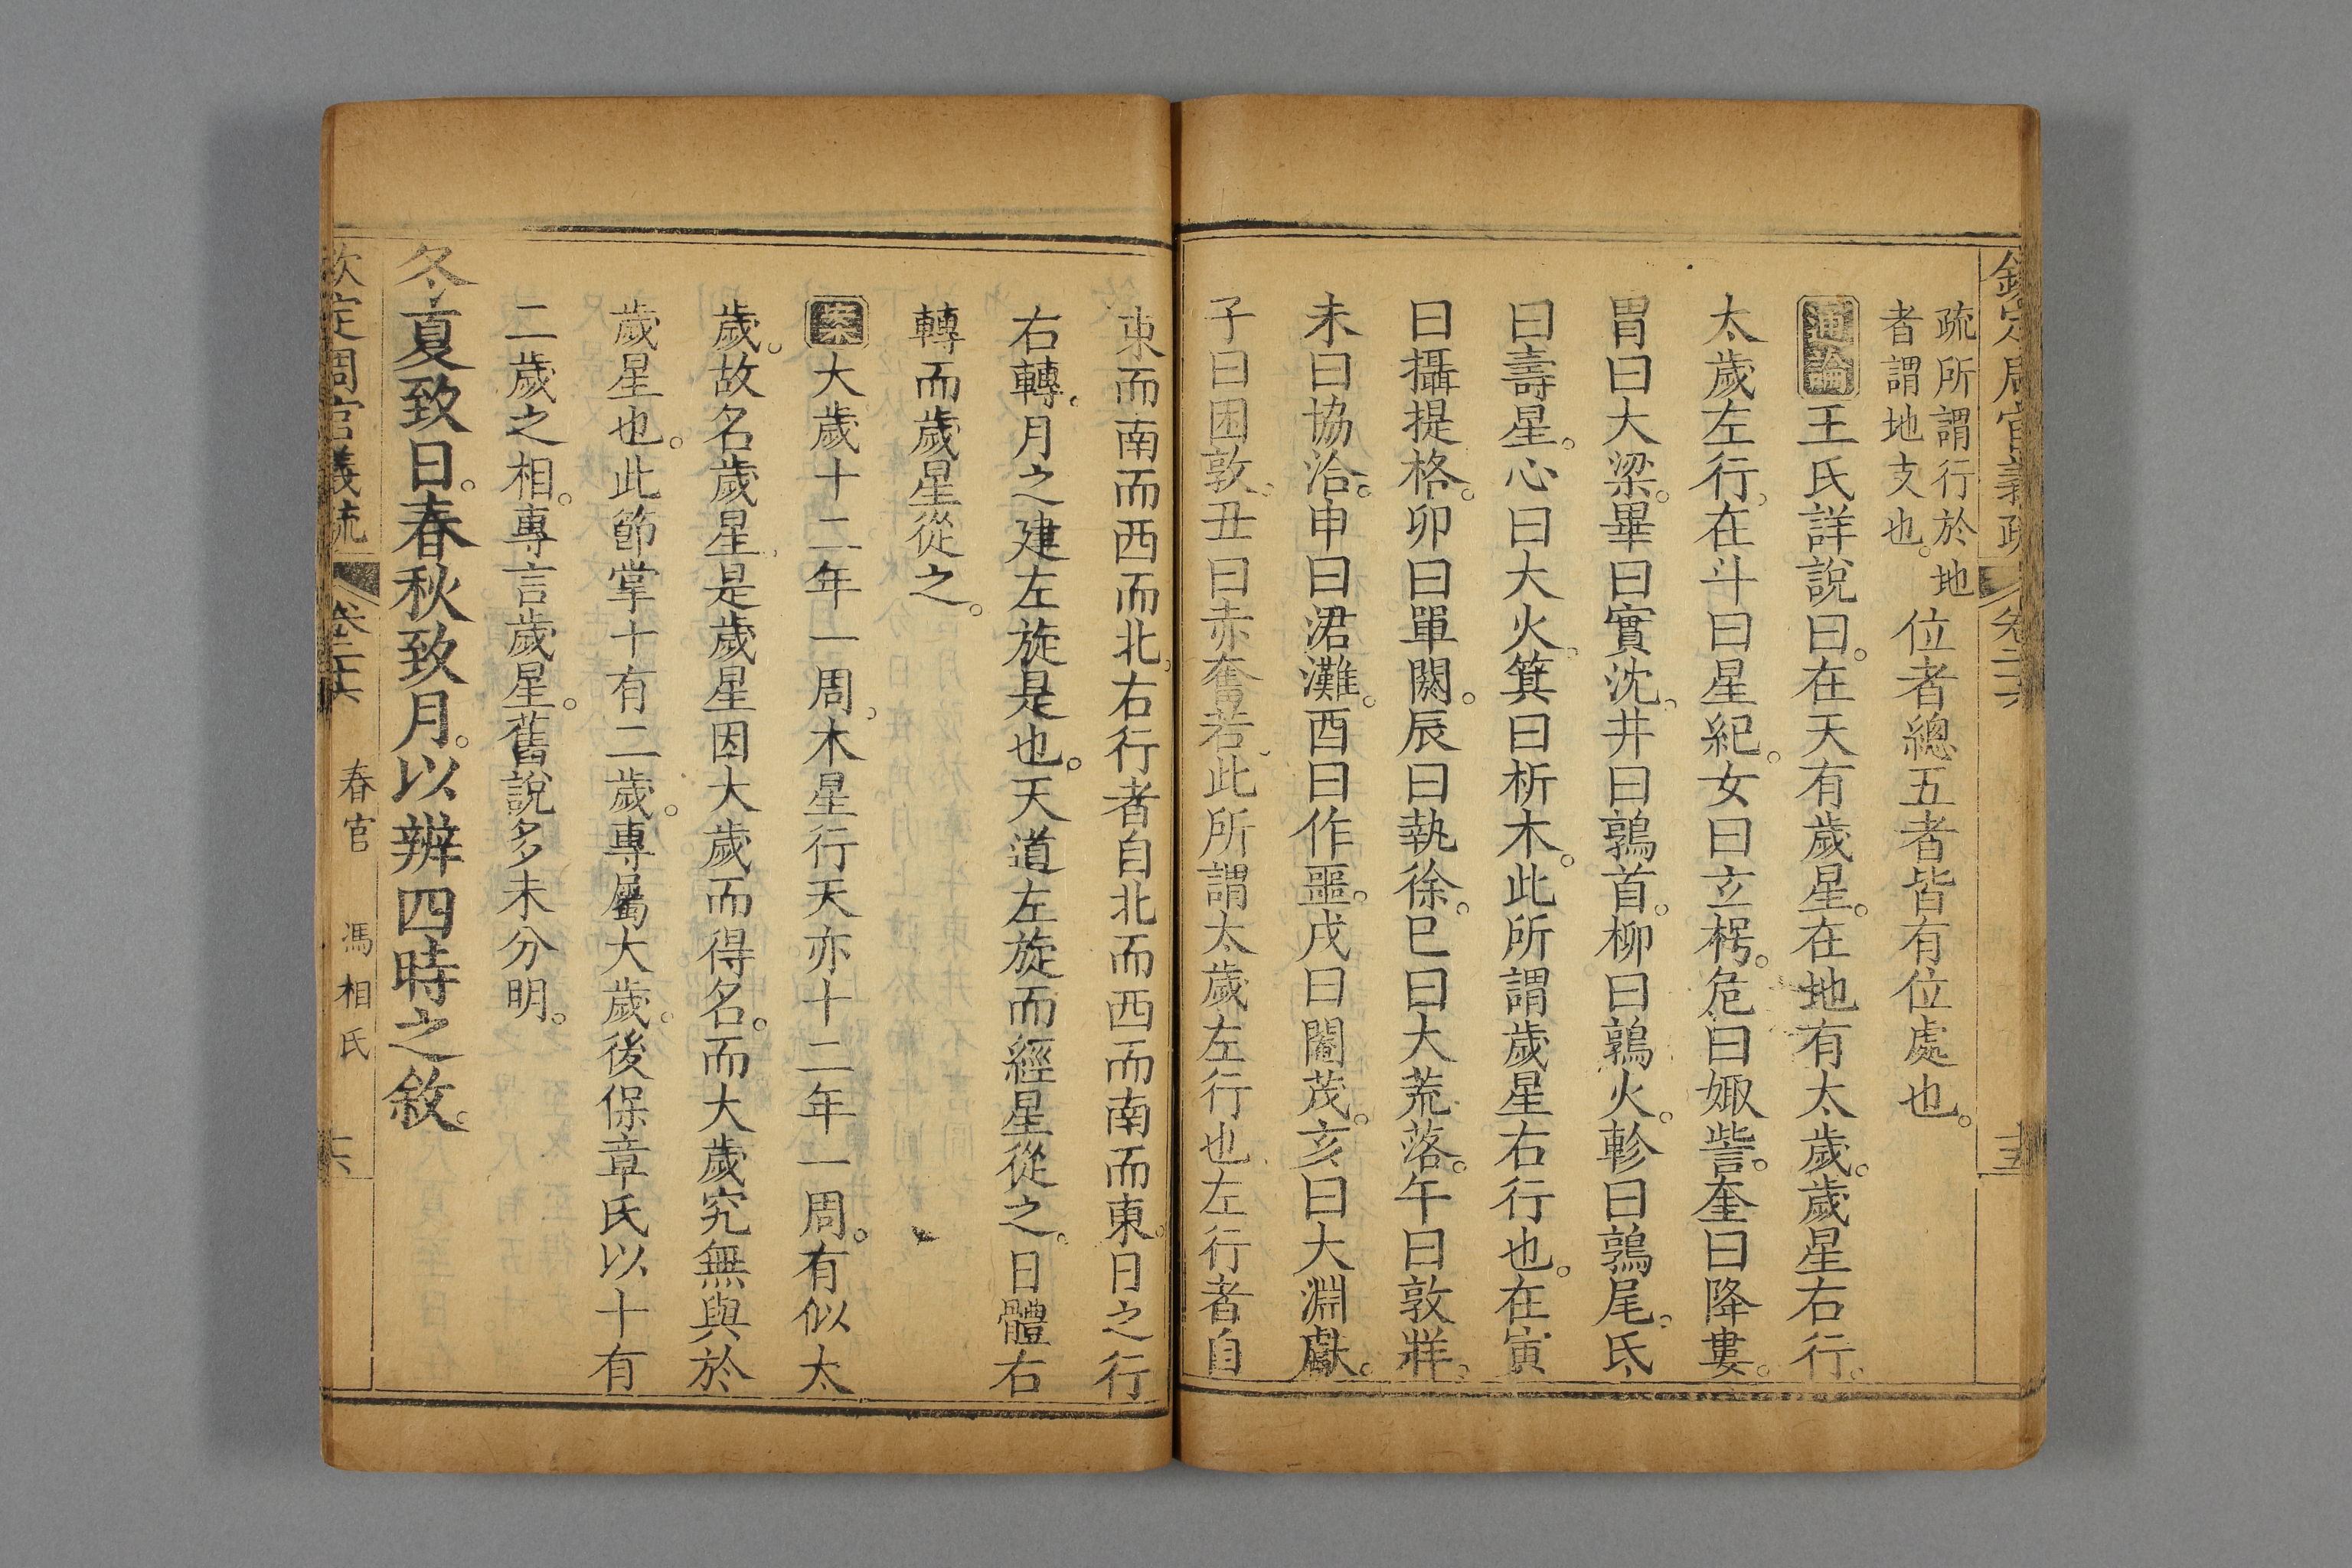 欽定周官義疏 卷二六 十五
疏所謂行於地
者謂地支也。
位者總五者皆有位處也。
通論王氏詳說曰。在天有歲星。在地有太歲。歲星右行。
太歲左行。在斗曰星紀。女曰立枵。危曰娵訾。奎曰降婁。
胃曰大梁。畢曰實沈。井曰鶉首。柳曰鶉火。軫曰鶉尾。氐
曰壽星。心曰大火。箕曰析木。此所謂歲星右行也。在寅
曰攝提格。卯曰單閼。辰曰執徐。巳曰大荒落。午曰敦牂。
未曰協洽。申曰涒灘。酉曰作噩。戌曰閹茂。亥曰大淵獻。
子曰困敦。丑曰赤奮若。此所謂太歲左行也。左行者自
東而南而西而北。右行者自北而西而南而東。日之行
右轉。月之建左旋是也。天道左旋而經星從之。日體右
轉而歲星從之。
案大歲十二年一周。木星行天亦十二年一周。有似太
歲。故名歲星。是歲星因大歲而得名。而大歲究無與於
歲星也。此節掌十有二歲。專屬大歲。後保章氏以十有
二歲之相。專言歲星。舊說多未分明。
冬夏致日。春秋致月。以辨四時之敘。
欽定周官義疏 卷二六 春官 馮相氏 十六